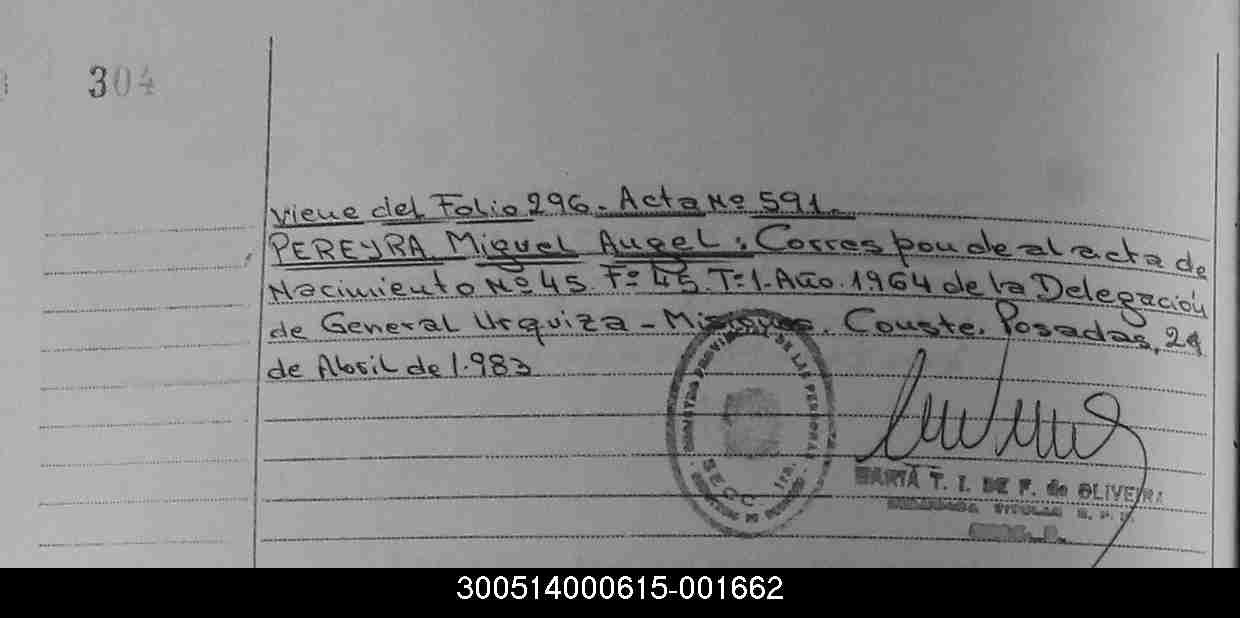 304
Viene del Folio 296. Acta Nº 591.
PEREYRA Miguel Angel: Corresponde al acta de
Nacimiento Nº 45. Fº 45. Tº 1. Año. 1964 de la Delegación
de General Urquiza - Misiones. Conste. Posadas, 24
de Abril de 1.983
REGISTRO PROVINCIAL DE LAS PERSONAS
SECC. 1ra.
MARTA T. I. DE F. de OLIVEIRA
TITULAR
300514000615-001662